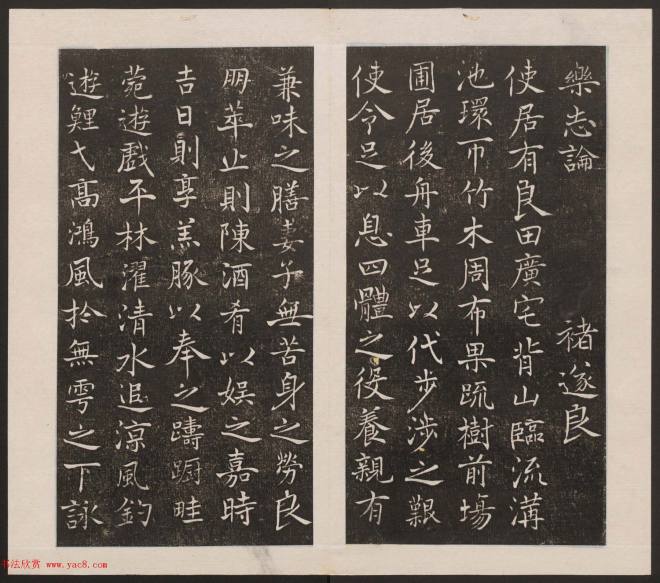 樂志論 褚遂良
使居有良田廣宅背山臨流溝
池環帀竹木周布果蔬樹前場
圃居後舟車足以代步涉之艱
使令足以息四體之役養親有
兼味之膳妻子無苦身之勞良
朋萃止則陳酒肴以娱之嘉時
吉日則享羔豚以奉之躊躕畦
菀遊戲平林濯清水追涼風釣
遊鯉弋高鴻風於無雩之下詠
书法欣赏 www.yac8.com